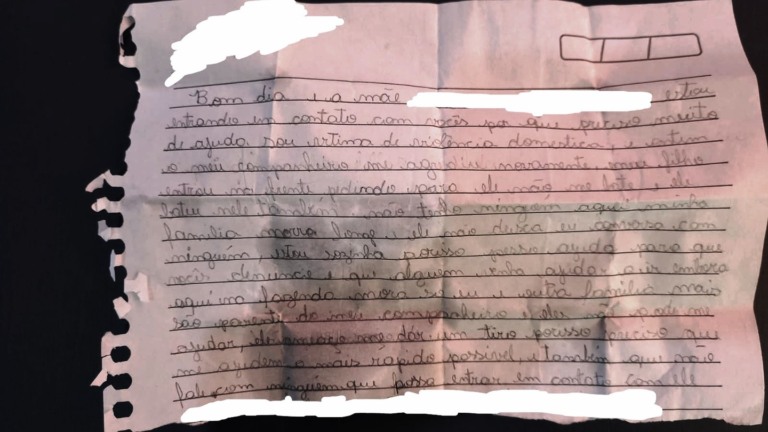 Bom dia e a mãe estou
entrando em contato com vocês por que preciso muito
de ajuda. sou vitima de violência domestica, e ontem
o meu companheiro me agrediu novamente, e meu filho
entrou na frente pedindo para ele não me bate e ele
bateu nele também não tenho ninguém aqui minha
familia morra longe e ele não deixa eu conversa com
ninguém, estou sozinha pousso pesso ajuda para que
vocês denuncie e que alguem venha ajuda a ir embora
aqui na fazenda mora so eu e outra familia mais
são parente do meu companheiro e eles não pode me
ajudar, ele ameaço me dár um tiro pousso preciso que
me ajudem o mais rápido possivel, e também que não
fale com ninguém que possa entrar em contato com ele